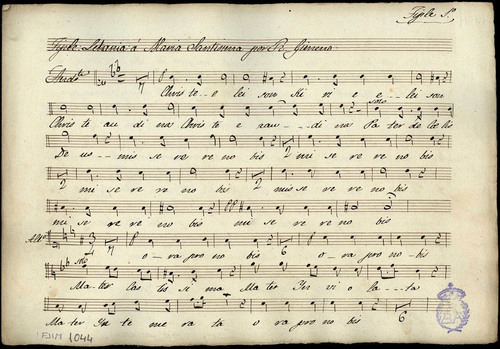 Tiple 1º
Tiple Letania á Maria Santisima por R. Gimeno
Andte 7
Chris te e lei son Ki ri e e lei son
solo
Chris te au di nos Chris te e xau di nos Pa ter de Ce lis
De us mis se re re no bis 2 mi se re re no bis
2 mi se re re no bis 2 mis se re re no bis
mi se re re no bis mi se re re no bis
Allº 7 6
o ra pro no bis o ra pro no bis
Solo
Ma ter Cas tis si ma Ma ter Yn vi o la ta
Ma ter Yn te me ra ta o ra pro no bis 6
1044